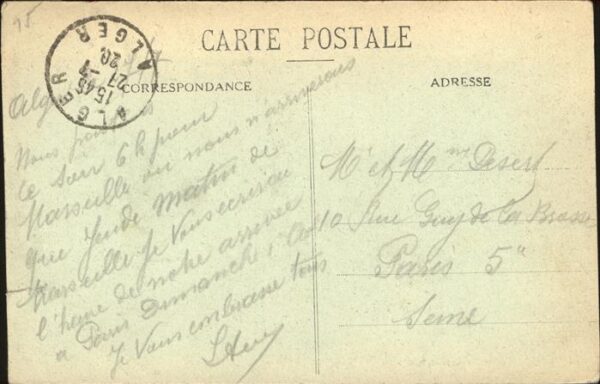 15.
CARTE POSTALE
ALGER
ALGER
15 45
27 -7
20
CORRESPONDANCE
ADRESSE
Nous partons
le soir 6 h pour
Marseille où nous n'arriverons
que Jeudi matin de
Marseille Je Vous écrirai
l'heure de notre arrivée
a Paris Dimanche
Je Vous embrasse tous
Mr et Mme Desert
10 Rue Guy de la Brosse
Paris 5e
Seine